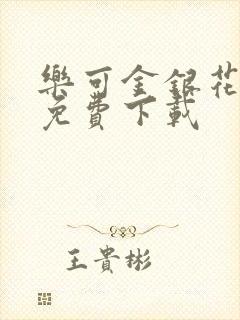 樂可金銀花
免費下載
王貴彬